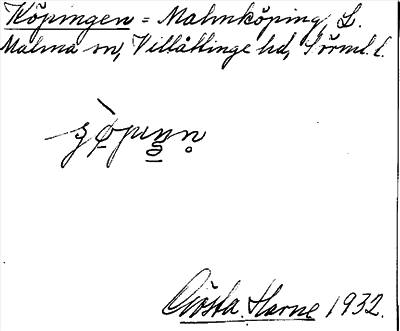 Köpingen = Malmköping, L.
Malma sn, Villåttinge hd, Srml. l.
Gösta Harne 1932.